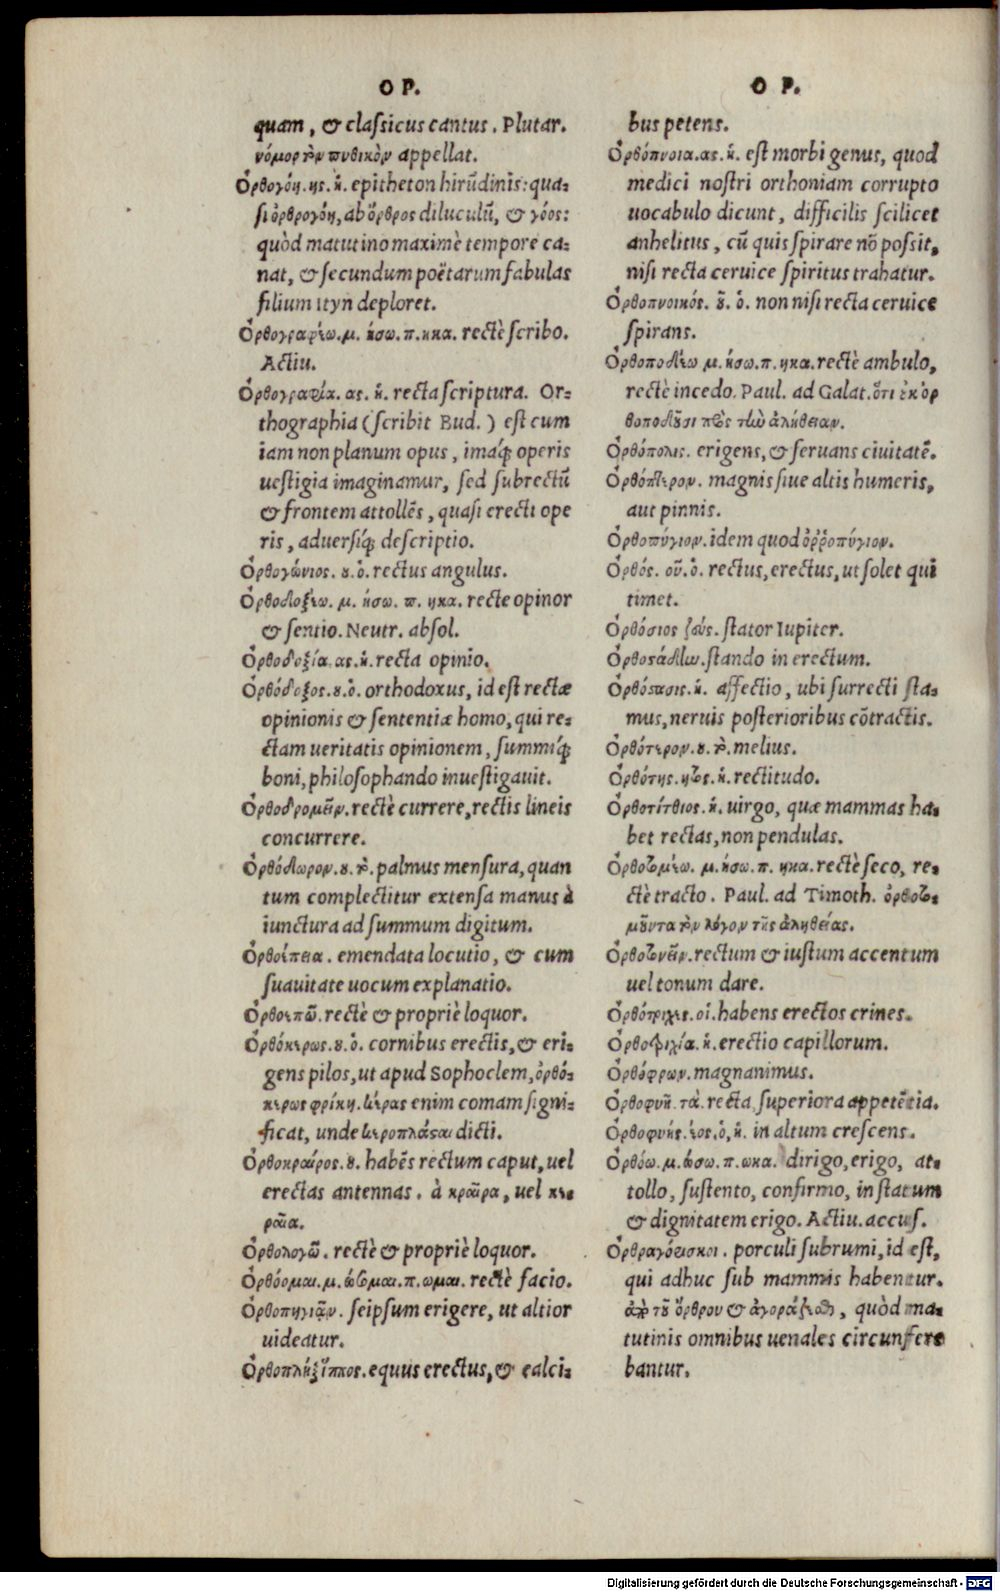 ΟΡ.
quam, & classicus cantus. Plutar.
νόμον τὸν πυθικὸν appellat.
Ὀρθογόη. ης. ἡ. epitheton hirūdinis: qua-
si ὀρθρογόη, ab ὄρθρος diluculū, & γόος:
quòd matutino maximè tempore ca-
nat, & secundum poëtarum fabulas
filium Ityn deploret.
Ὀρθογραφέω. μ. ήσω. π. ηκα. rectè scribo.
Actiu.
Ὀρθογραφία. ας. ἡ. recta scriptura. Or-
thographia (scribit Bud.) est cum
iam non planum opus, imáq; operis
uestigia imaginamur, sed subrectū
& frontem attollēs, quasi erecti ope
ris, aduersiq; descriptio.
Ὀρθογώνιος. ου. ὁ. rectus angulus.
Ὀρθοδοξέω. μ. ήσω. π. ηκα. recte opinor
& sentio. Neutr. absol.
Ὀρθοδοξία. ας. ἡ. recta opinio.
Ὀρθόδοξος. ου. ὁ. orthodoxus, id est rectæ
opinionis & sententiæ homo, qui re-
ctam ueritatis opinionem, summiq;
boni, philosophando inuestigauit.
Ὀρθοδρομεῖν. rectè currere, rectis lineis
concurrere.
Ὀρθόδωρον. ου. τὸ. palmus mensura, quan
tum complectitur extensa manus à
iunctura ad summum digitum.
Ὀρθοέπεια. emendata locutio, & cum
suauitate uocum explanatio.
Ὀρθοεπῶ. rectè & propriè loquor.
Ὀρθόκερως. ου. ὁ. cornibus erectis, & eri-
gens pilos, ut apud Sophoclem, ὀρθό-
κερως φρίκη. κέρας enim comam signi-
ficat, unde κεροπλάσαι dicti.
Ὀρθοκραῖρος. ου. habēs rectum caput, uel
erectas antennas. à κραῖρα, uel κε-
ραία.
Ὀρθολογῶ. rectè & propriè loquor.
Ὀρθόομαι. μ. ώσομαι. π. ωμαι. rectè facio.
Ὀρθοπηγιᾷν. seipsum erigere, ut altior
uideatur.
Ὀρθοπλὴξ ἵππος. equus erectus, & calci-
ΟΡ.
bus petens.
Ὀρθόπνοια. ας. ἡ. est morbi genus, quod
medici nostri orthoniam corrupto
uocabulo dicunt, difficilis scilicet
anhelitus, cū quis spirare nō possit,
nisi recta ceruice spiritus trahatur.
Ὀρθοπνοικός. οῦ. ὁ. non nisi recta ceruice
spirans.
Ὀρθοποδέω μ. ήσω. π. ηκα. rectè ambulo,
rectè incedo. Paul. ad Galat. ὅτι οὐκ ὀρ
θοποδοῦσι πρὸς τὴν ἀλήθειαν.
Ὀρθόπολις. erigens, & seruans ciuitatē.
Ὀρθόπτερον. magnis siue altis humeris,
aut pinnis.
Ὀρθοπύγιον. idem quod ὀῤῥοπύγιον.
Ὀρθός. οῦ. ὁ. rectus, erectus, ut solet qui
timet.
Ὀρθόσιος ζεύς. stator Iupiter.
Ὀρθοστάδην. stando in erectum.
Ὀρθόστασις. ἡ. affectio, ubi surrecti sta-
mus, neruis posterioribus cōtractis.
Ὀρθότερον. ου. τὸ. melius.
Ὀρθότης. ητος. ἡ. rectitudo.
Ὀρθοτίτθιος. ἡ. uirgo, quæ mammas ha-
bet rectas, non pendulas.
Ὀρθοτομέω. μ. ήσω. π. ηκα. rectè seco, re-
ctè tracto. Paul. ad Timoth. ὀρθοτο-
μοῦντα τὸν λόγον τῆς ἀληθείας.
Ὀρθοτονεῖν. rectum & iustum accentum
uel tonum dare.
Ὀρθότριχες. οἱ. habens erectos crines.
Ὀρθοτριχία. ἡ. erectio capillorum.
Ὀρθόφρων. magnanimus.
Ὀρθοφυῆ. τὰ. recta, superiora appetētia.
Ὀρθοφυής. έος. ὁ, ἡ. in altum crescens.
Ὀρθόω. μ. ώσω. π. ωκα. dirigo, erigo, at-
tollo, sustento, confirmo, in statum
& dignitatem erigo. Actiu. accus.
Ὀρθραγόεισκοι. porculi subrumi, id est,
qui adhuc sub mammis habentur.
ἀπὸ τοῦ ὄρθρου & ἀγοράζεσθαι, quòd ma-
tutinis omnibus uenales circunfere
bantur.
Digitalisierung gefördert durch die Deutsche Forschungsgemeinschaft - DFG